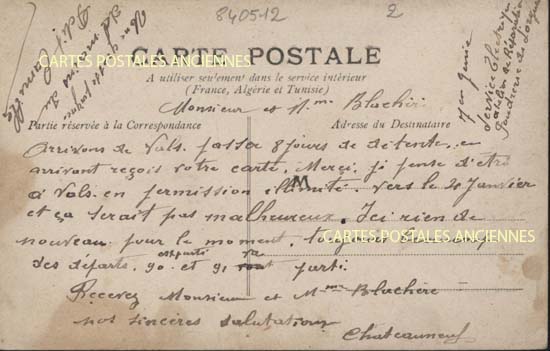 8405-12
2
CARTE POSTALE
CARTES POSTALES ANCIENNES
A utiliser seulement dans le service intérieur
(France, Algérie et Tunisie)
Monsieur et Mme Blachère
Partie réservée à la Correspondance
Adresse du Destinataire
Arrivons de Vals passer 8 jours de détente, en
arrivant reçois votre carte, Merci, je pense d'être
à Vals en permission illimité vers le 20 Janvier
et ça serait pas malheureux. Ici rien de
nouveau pour le moment, toujours beaucoup
CARTES POSTALES ANCIENNES
des départs, 90 et 91 parti.
Recevez Monsieur et Mme Blachère
nos sincères salutations
Chateauneuf
7em génie
Service Electrique
atelier de Réparation